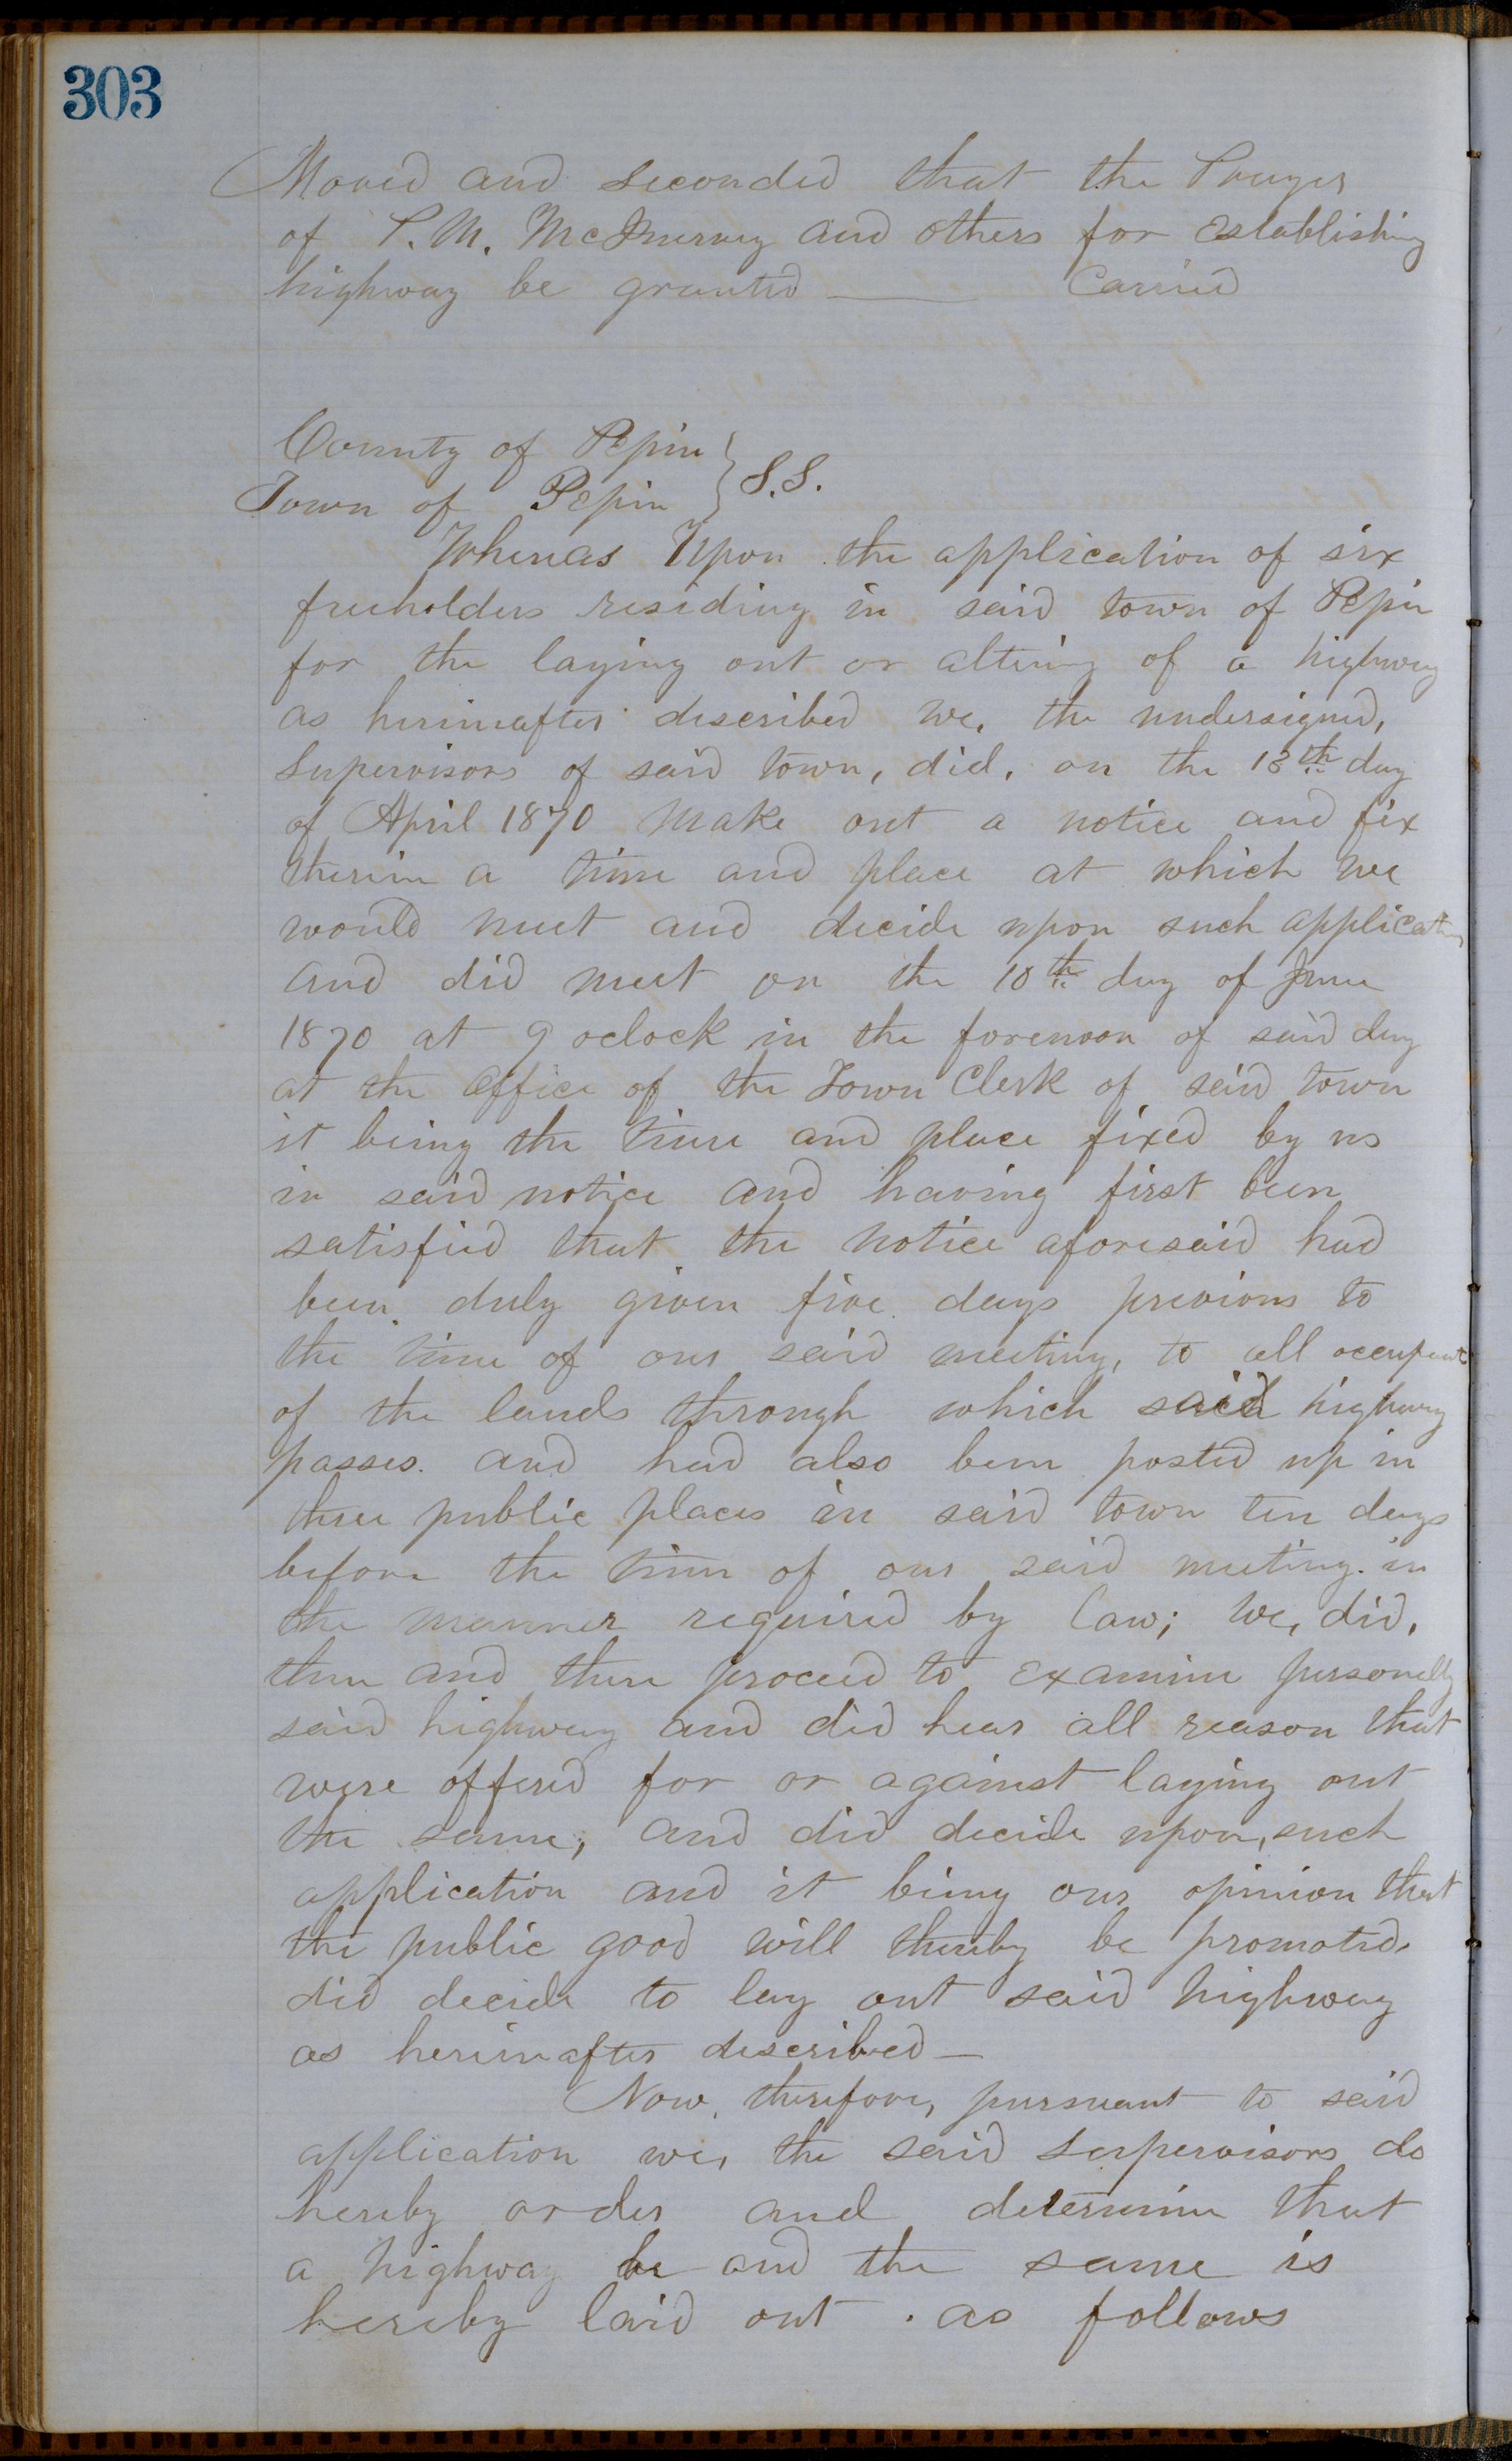 303
Moved and Seconded that the Prayer
of P. M. McInerney and others for Establishing
highway be granted — Carried
County of Pepin } S.S.
Town of Pepin
Whereas Upon the application of six
freeholders residing in said town of Pepin
for the laying out or altering of a highway
as hereinafter described we, the undersigned,
Supervisors of said town, did, on the 13th day
of April 1870 Make out a notice and fix
therein a time and place at which we
would meet and decide upon such application
and did meet on the 10th day of June
1870 at 9 oclock in the forenoon of said day
at the office of the Town Clerk of said town
it being the time and place fixed by us
in said notice and having first been
satisfied that the notice aforesaid had
been duly given five days previous to
the time of our said meeting, to all occupants
of the lands through which said highway
passes. and had also been posted up in
three public places in said town ten days
before the time of our said meeting. in
the manner required by law; We, did,
then and there proceed to Examine personally
said highway and did hear all reason that
were offered for or against laying out
the same, and did decide upon, such
application and it being our opinion that
the public good will thereby be promoted.
did decide to lay out said highway
as hereinafter described —
Now, therefore, pursuant to said
application we, the said Supervisors do
hereby order and determine that
a highway be and the same is
hereby laid out . as follows